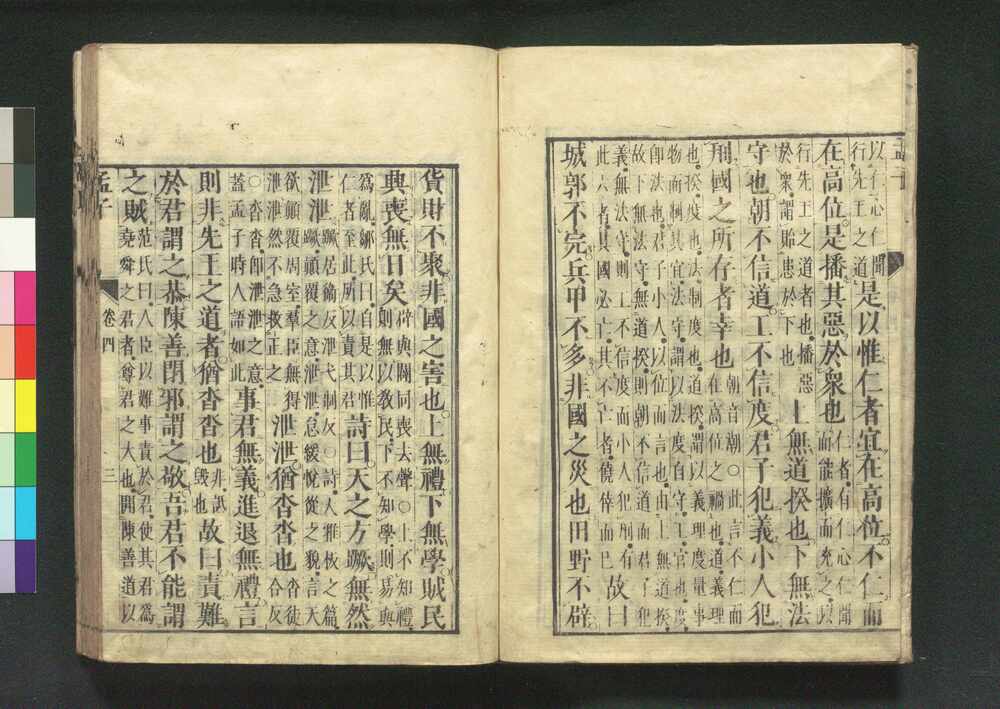 孟子
以仁心仁聞
行先王之道
是以惟仁者宜在高位不仁而
在高位是播其惡於衆也
仁者有仁心仁聞
而能擴而充之以
行先王之道者也播惡
於衆謂貽患於下也
上無道揆也下無法
守也朝不信道工不信度君子犯義小人犯
刑國之所存者幸也
朝音潮○此言不仁而
在高位之禍也道義理
也揆度也法制度也道揆謂以義理度量事
物而制其宜法守謂以法度自守工官也度
即法也君子小人以位而言也由上無道揆
故下無法守無道揆則朝不信道而君子犯
義無法守則工不信度而小人犯刑有
此六者其國必亡其不亡者僥倖而已
故曰
城郭不完兵甲不多非國之災也田野不辟
貨財不聚非國之害也上無禮下無學賊民
興喪無日矣
辟與闢同喪去聲○上不知禮
則無以敎民下不知學則易與
爲亂鄒氏曰自是以惟
仁者至此所以責其君
詩曰天之方蹶無然
泄泄
蹶居衛反泄弋制反○詩大雅板之篇
蹶顚覆之意泄泄怠緩悅從之貌言天
欲顚覆周室羣臣無得
泄泄然不急救正之
泄泄猶沓沓也
沓徒
合反
○沓沓即泄泄之意
蓋孟子時人語如此
事君無義進退無禮言
則非先王之道者猶沓沓也
非詆
毁也
故曰責難
於君謂之恭陳善閉邪謂之敬吾君不能謂
之賊
范氏曰人臣以難事責於君使其君爲
堯舜之君者尊君之大也開陳善道以
孟子 卷四 三